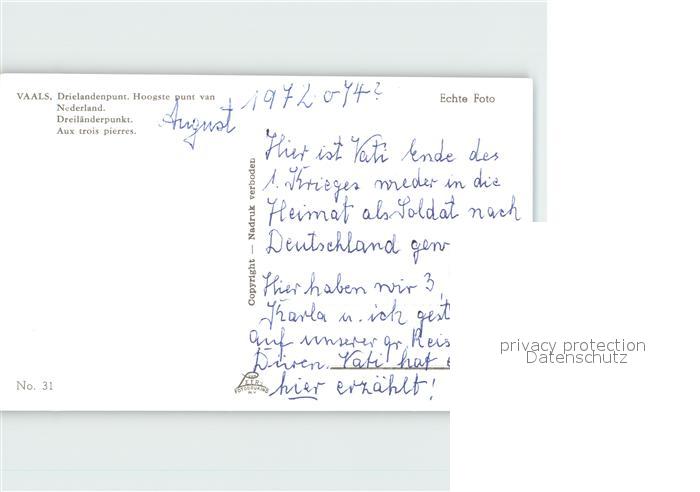 VAALS, Drielandenpunt. Hoogste punt van
Nederland.
Dreiländerpunkt.
Aux trois pierres.
August 1972 o 74?
Echte Foto
Hier ist Vati Ende des
1. Krieges wieder in die
Heimat als Soldat nach
Deutschland gew
Hier haben wir 3,
Karla u. ich gest
auf unserer gr. Reis
Düren. Vati hat
hier erzählt!
Copyright — Nadruk verboden
No. 31
privacy protection
Datenschutz